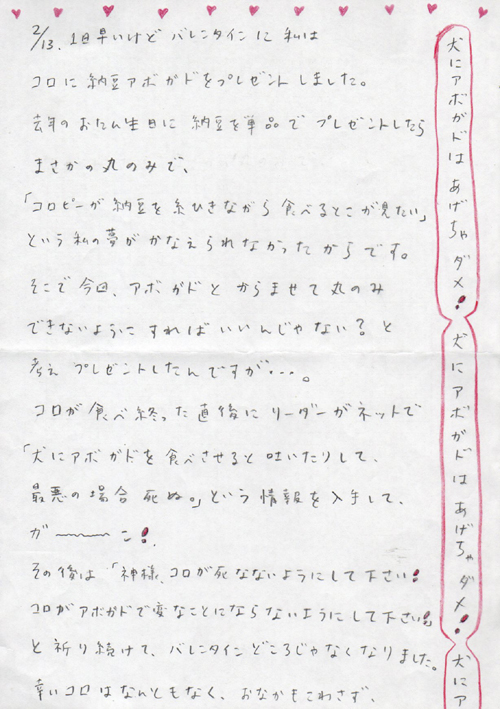 2/13. 1日早いけど バレンタインに 私は
コロに 納豆アボガドをプレゼント しました。
去年の おたん生日に 納豆を単品で プレゼントしたら
まさかの 丸のみで、
「コロピーが 納豆を 糸ひきながら 食べるとこが見たい」
という 私の夢が かなえられなかったからです。
そこで 今回、アボガドと からませて 丸のみ
できないように すれば いいんじゃない？と
考え プレゼントしたんですが・・・。
コロが 食べ終った 直後に リーダーがネットで
「犬にアボガドを 食べさせると 吐いたりして、
最悪の場合 死ぬ。」という 情報を 入手して、
ガ〜〜〜ン！
その後は「神様、コロが 死なないようにして下さい！
コロがアボガドで変なことにならないようにして下さい！」
と 祈り続けて、バレンタインどころじゃなくなりました。
幸いコロは なんともなく、おなかもこわさず、
犬にアボガドは あげちゃ ダメ！
犬に アボガドは あげちゃ ダメ！
犬にア